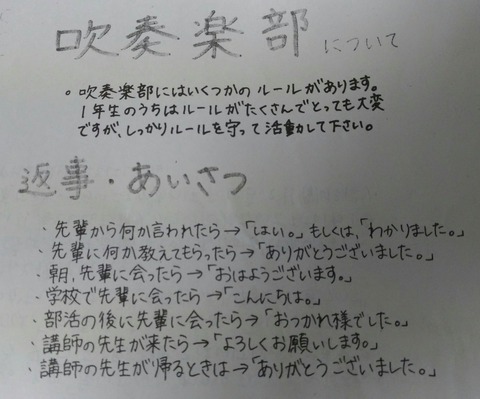 吹奏楽部について
。吹奏楽部にはいくつかのルールがあります。
1年生のうちはルールがたくさんでとっても大変
ですが、しっかりルールを守って活動して下さい。
返事・あいさつ
・先輩から何か言われたら→「はい。」もしくは、「わかりました。」
・先輩に何か教えてもらったら→「ありがとうございました。」
・朝、先輩に会ったら→「おはようございます。」
・学校で先輩に会ったら→「こんにちは。」
・部活の後に先輩に会ったら→「おつかれ様でした。」
・講師の先生が来たら→「よろしくお願いします。」
・講師の先生が帰るときは→「ありがとうございました。」